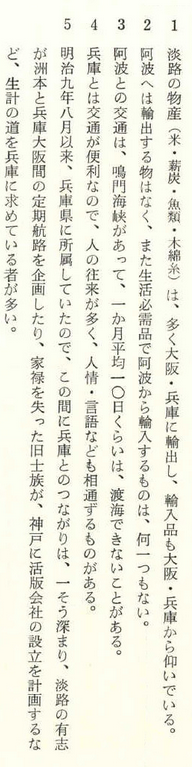 1 淡路の物産（米・薪炭・魚類・木綿糸）は、多く大阪・兵庫に輸出し、輸入品も大阪・兵庫から仰いでいる。
2 阿波へは輸出する物はなく、また生活必需品で阿波から輸入するものは、何一つもない。
3 阿波との交通は、鳴門海峡があって、一か月平均一〇日くらいは、渡海できないことがある。
4 兵庫とは交通が便利なので、人の往来が多く、人情・言語なども相通ずるものがある。
5 明治九年八月以来、兵庫県に所属していたので、この間に兵庫とのつながりは、一そう深まり、淡路の有志
が洲本と兵庫大阪間の定期航路を企画したり、家禄を失った旧士族が、神戸に活版会社の設立を計画するな
ど、生計の道を兵庫に求めている者が多い。